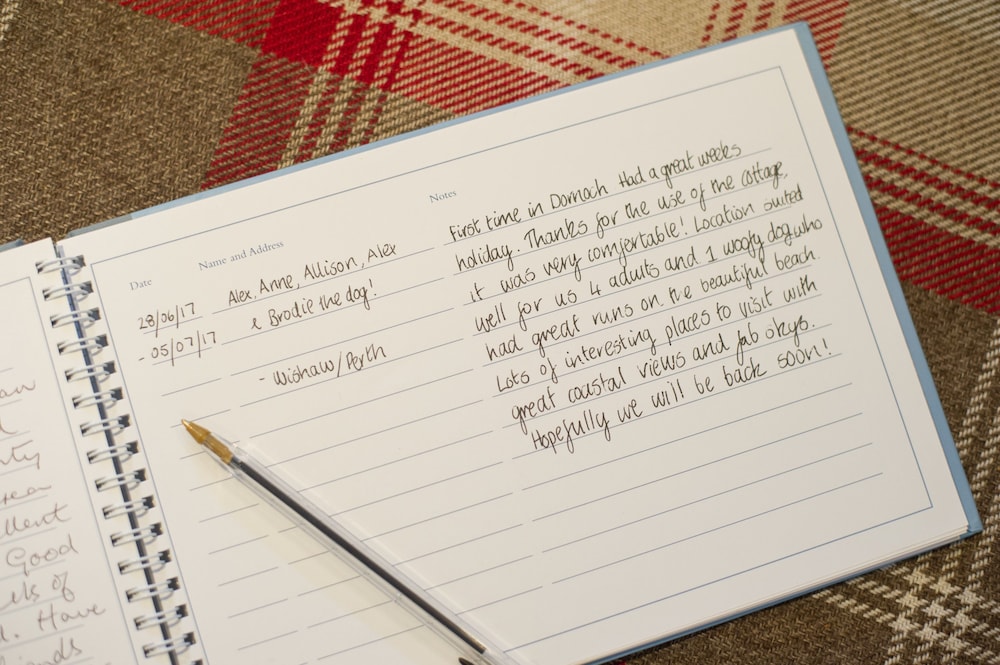 aw
ty
ellent
Good
ls of
d. Have
nds
Date
Name and Address
Notes
28/06/17
- 05/07/17
Alex, Anne, Allison, Alex
& Brodie the dog!
- Wishaw/Perth
First time in Dornoch Had a great weeks
holiday. Thanks for the use of the cottage,
it was very comfortable! Location suited
well for us 4 adults and 1 woofy dog who
had great runs on the beautiful beach.
Lots of interesting places to visit with
great coastal views and fab skys.
Hopefully we will be back soon!